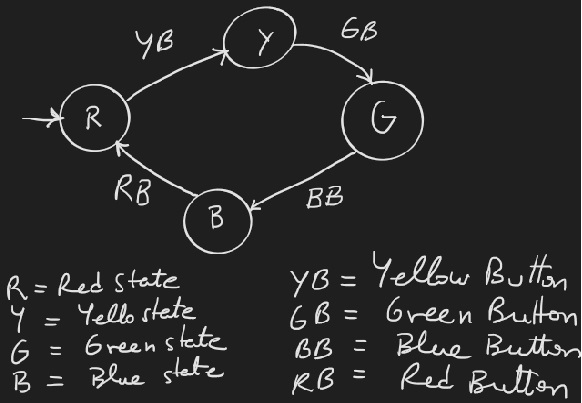 YB
Y
GB
R
G
RB
B
BB
R = Red state
Y = Yello state
G = Green state
B = Blue state
YB = Yellow Button
GB = Green Button
BB = Blue Button
RB = Red Button